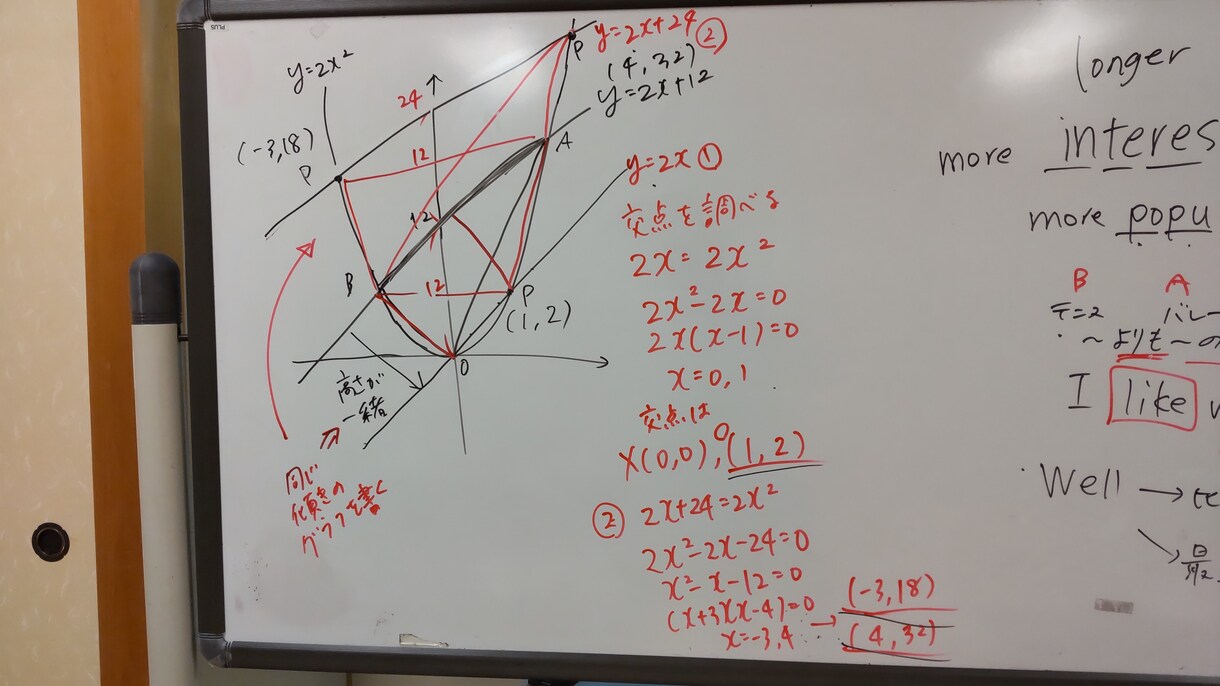 PLUS
y=2x²
(-3,18)
P
24
P
y=2x+24 ②
(4,32)
y=2x+12
A
12
12
B
12
P
(1,2)
O
高さが
一緒
同じ
傾きの
グラフを書く
y=2x ①
交点を調べる
2x=2x²
2x²-2x=0
2x(x-1)=0
x=0,1
交点は
X(0,0), O(1,2)
② 2x+24=2x²
2x²-2x-24=0
x²-x-12=0
(x+3)(x-4)=0 → (-3,18)
x=-3,4 (4,32)
longer
more interes
more popu
B A
テニス バレー
~よりも~の
I like
Well →